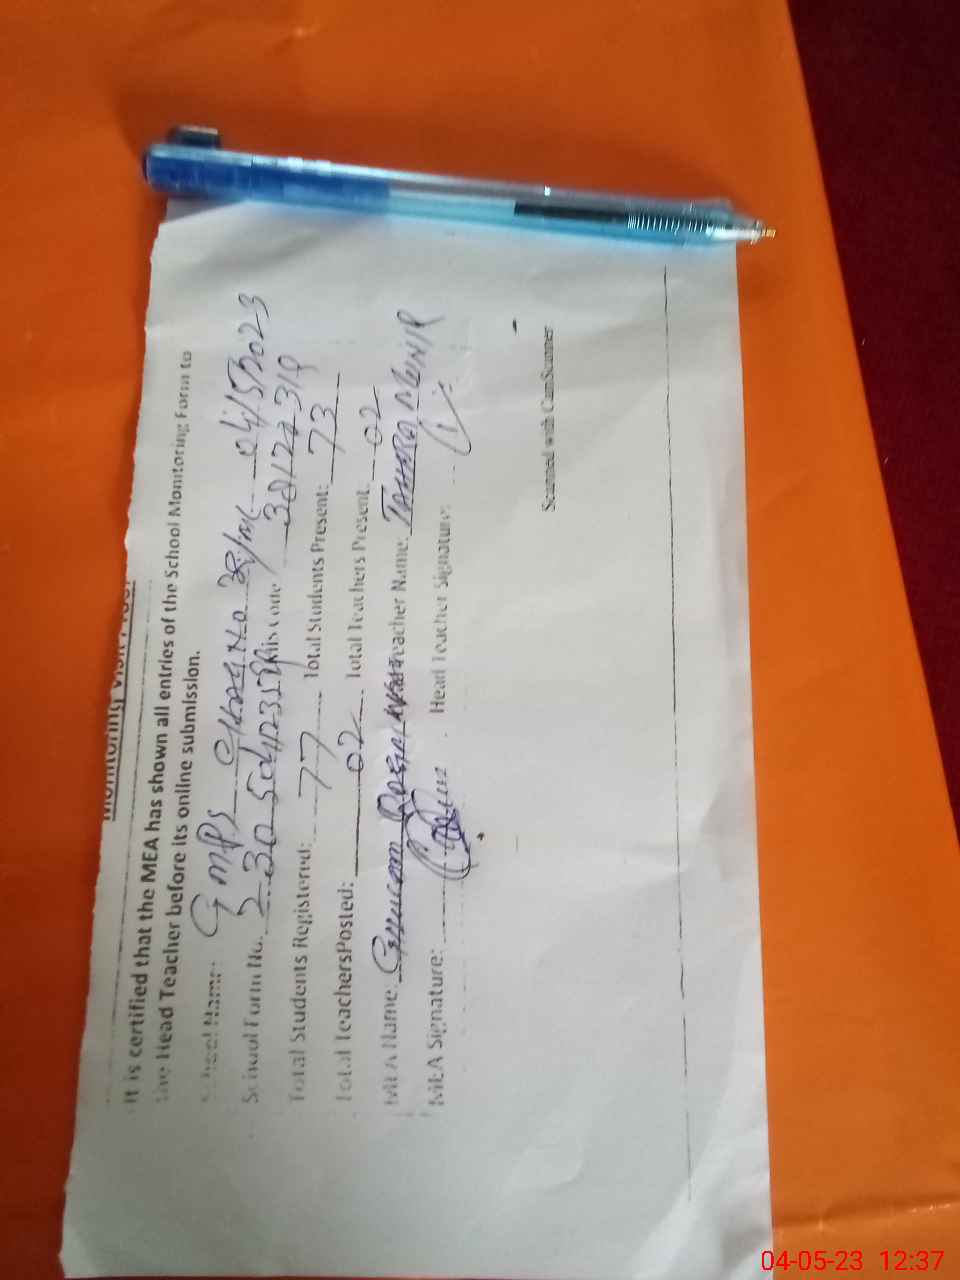 Monitoring Visit Proof
It is certified that the MEA has shown all entries of the School Monitoring Form to
the Head Teacher before its online submission.
School Name: GMPS 04/5/2023
School Form No. Emis code 38172319
Total Students Registered: 77 Total Students Present: 73
Total TeachersPosted: 02 Total Teachers Present: 02
MEA Name: Teacher Name: TAHIRA MUNIR
MEA Signature: Head Teacher Signature:
Scanned with CamScanner
04-05-23 12:37